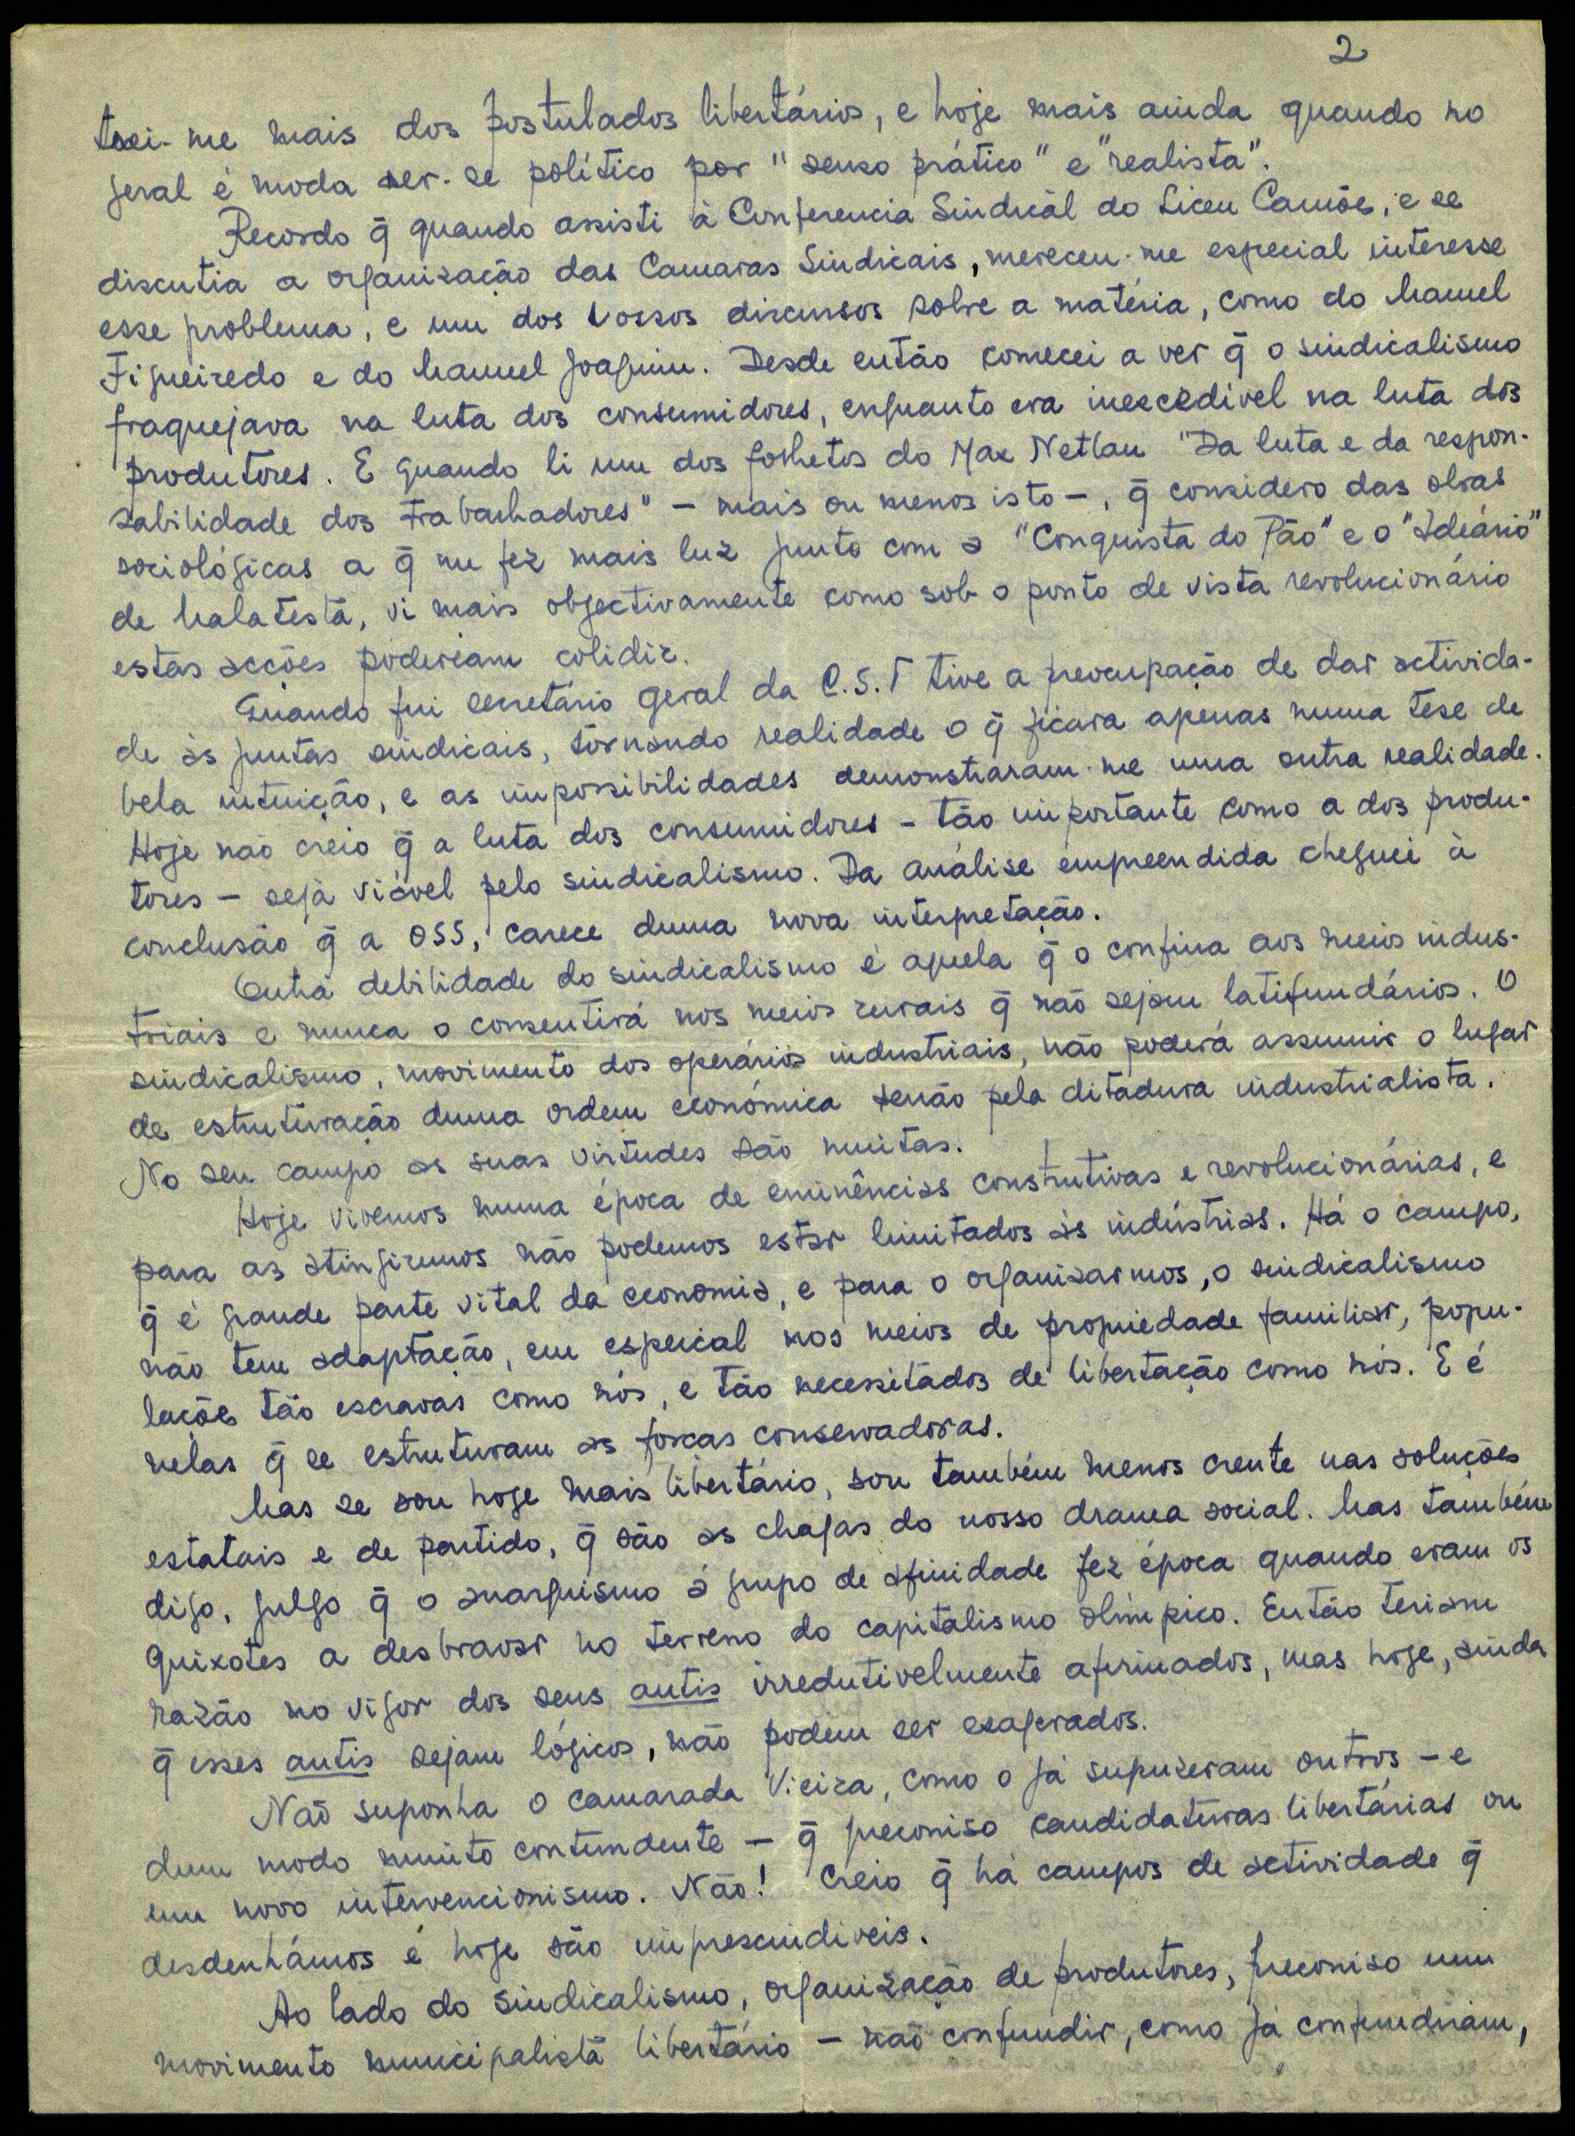 2
tei-me mais dos postulados libertários, e hoje mais ainda quando no
geral é moda ser-se político por "senso prático" e "realista".
Recordo q̄ quando assisti à Conferencia Sindicál do Liceu Camões, e se
discutia a organização das Camaras Sindicais, mereceu-me especial interesse
esse problema, e um dos vossos discursos sobre a matéria, como do Manuel
Figueiredo e do Manuel Joaquim. Desde então comecei a ver q̄ o sindicalismo
fraquejava na luta dos consumidores, enquanto era inexcedivel na luta dos
produtores. E quando li um dos folhetos do Max Netlau "Da luta e da respon-
sabilidade dos Trabalhadores" - mais ou menos isto -, q̄ considero das obras
sociológicas a q̄ me fez mais luz junto com a "Conquista do Pão" e o "Ideário"
de Malatesta, vi mais objectivamente como sob o ponto de vista revolucionário
estas acções poderiam colidir.
Quando fui secretário geral da C.S.T tive a preocupação de dar activida-
de às juntas sindicais, tornando realidade o q̄ ficara apenas numa tese de
bela intuição, e as impossibilidades demonstraram-me uma outra realidade.
Hoje não creio q̄ a luta dos consumidores - tão importante como a dos produ-
tores - seja viável pelo sindicalismo. Da análise empreendida cheguei à
conclusão q̄ a OSS, carece duma nova interpretação.
Outra debilidade do sindicalismo é aquela q̄ o confina aos meios indus-
triais e nunca o consentirá nos meios rurais q̄ não sejam latifundários. O
sindicalismo, movimento dos operários industriais, não poderá assumir o lugar
de estruturação duma ordem económica senão pela ditadura industrialista.
No seu campo as suas virtudes são muitas.
Hoje vivemos numa época de eminências construtivas e revolucionárias, e
para as atingiremos não podemos estar limitados às indústrias. Há o campo,
q̄ é grande parte vital da economia, e para o organisarmos, o sindicalismo
não tem adaptação, em espeical nos meios de propriedade familiar, popu-
lações tão escravas como nós, e tão necessitados de libertação como nós. E é
nelas q̄ se estruturam as forças conservadoras.
Mas se sou hoje mais libertário, sou também menos crente nas soluções
estatais e de partido, q̄ são as chagas do nosso drama social. Mas também
digo, julgo q̄ o anarquismo á grupo de afinidade fez época quando eram os
quixotes a desbravar no terreno do capitalismo olímpico. Então teriam
razão no vigor dos seus antis irredutivelmente afirmados, mas hoje, ainda
q̄ esses antis sejam lógicos, não podem ser exagerados.
Não suponha o camarada Vieira, como o já supuzeram outros - e
dum modo muito contundente - q̄ preconiso candidaturas libertárias ou
um novo intervencionismo. Não! Creio q̄ há campos de actividade q̄
desdenhámos e hoje são imprescindiveis.
Ao lado do sindicalismo, organização de produtores, preconiso um
movimento municipalista libertário - não confundir, como já confundiram,